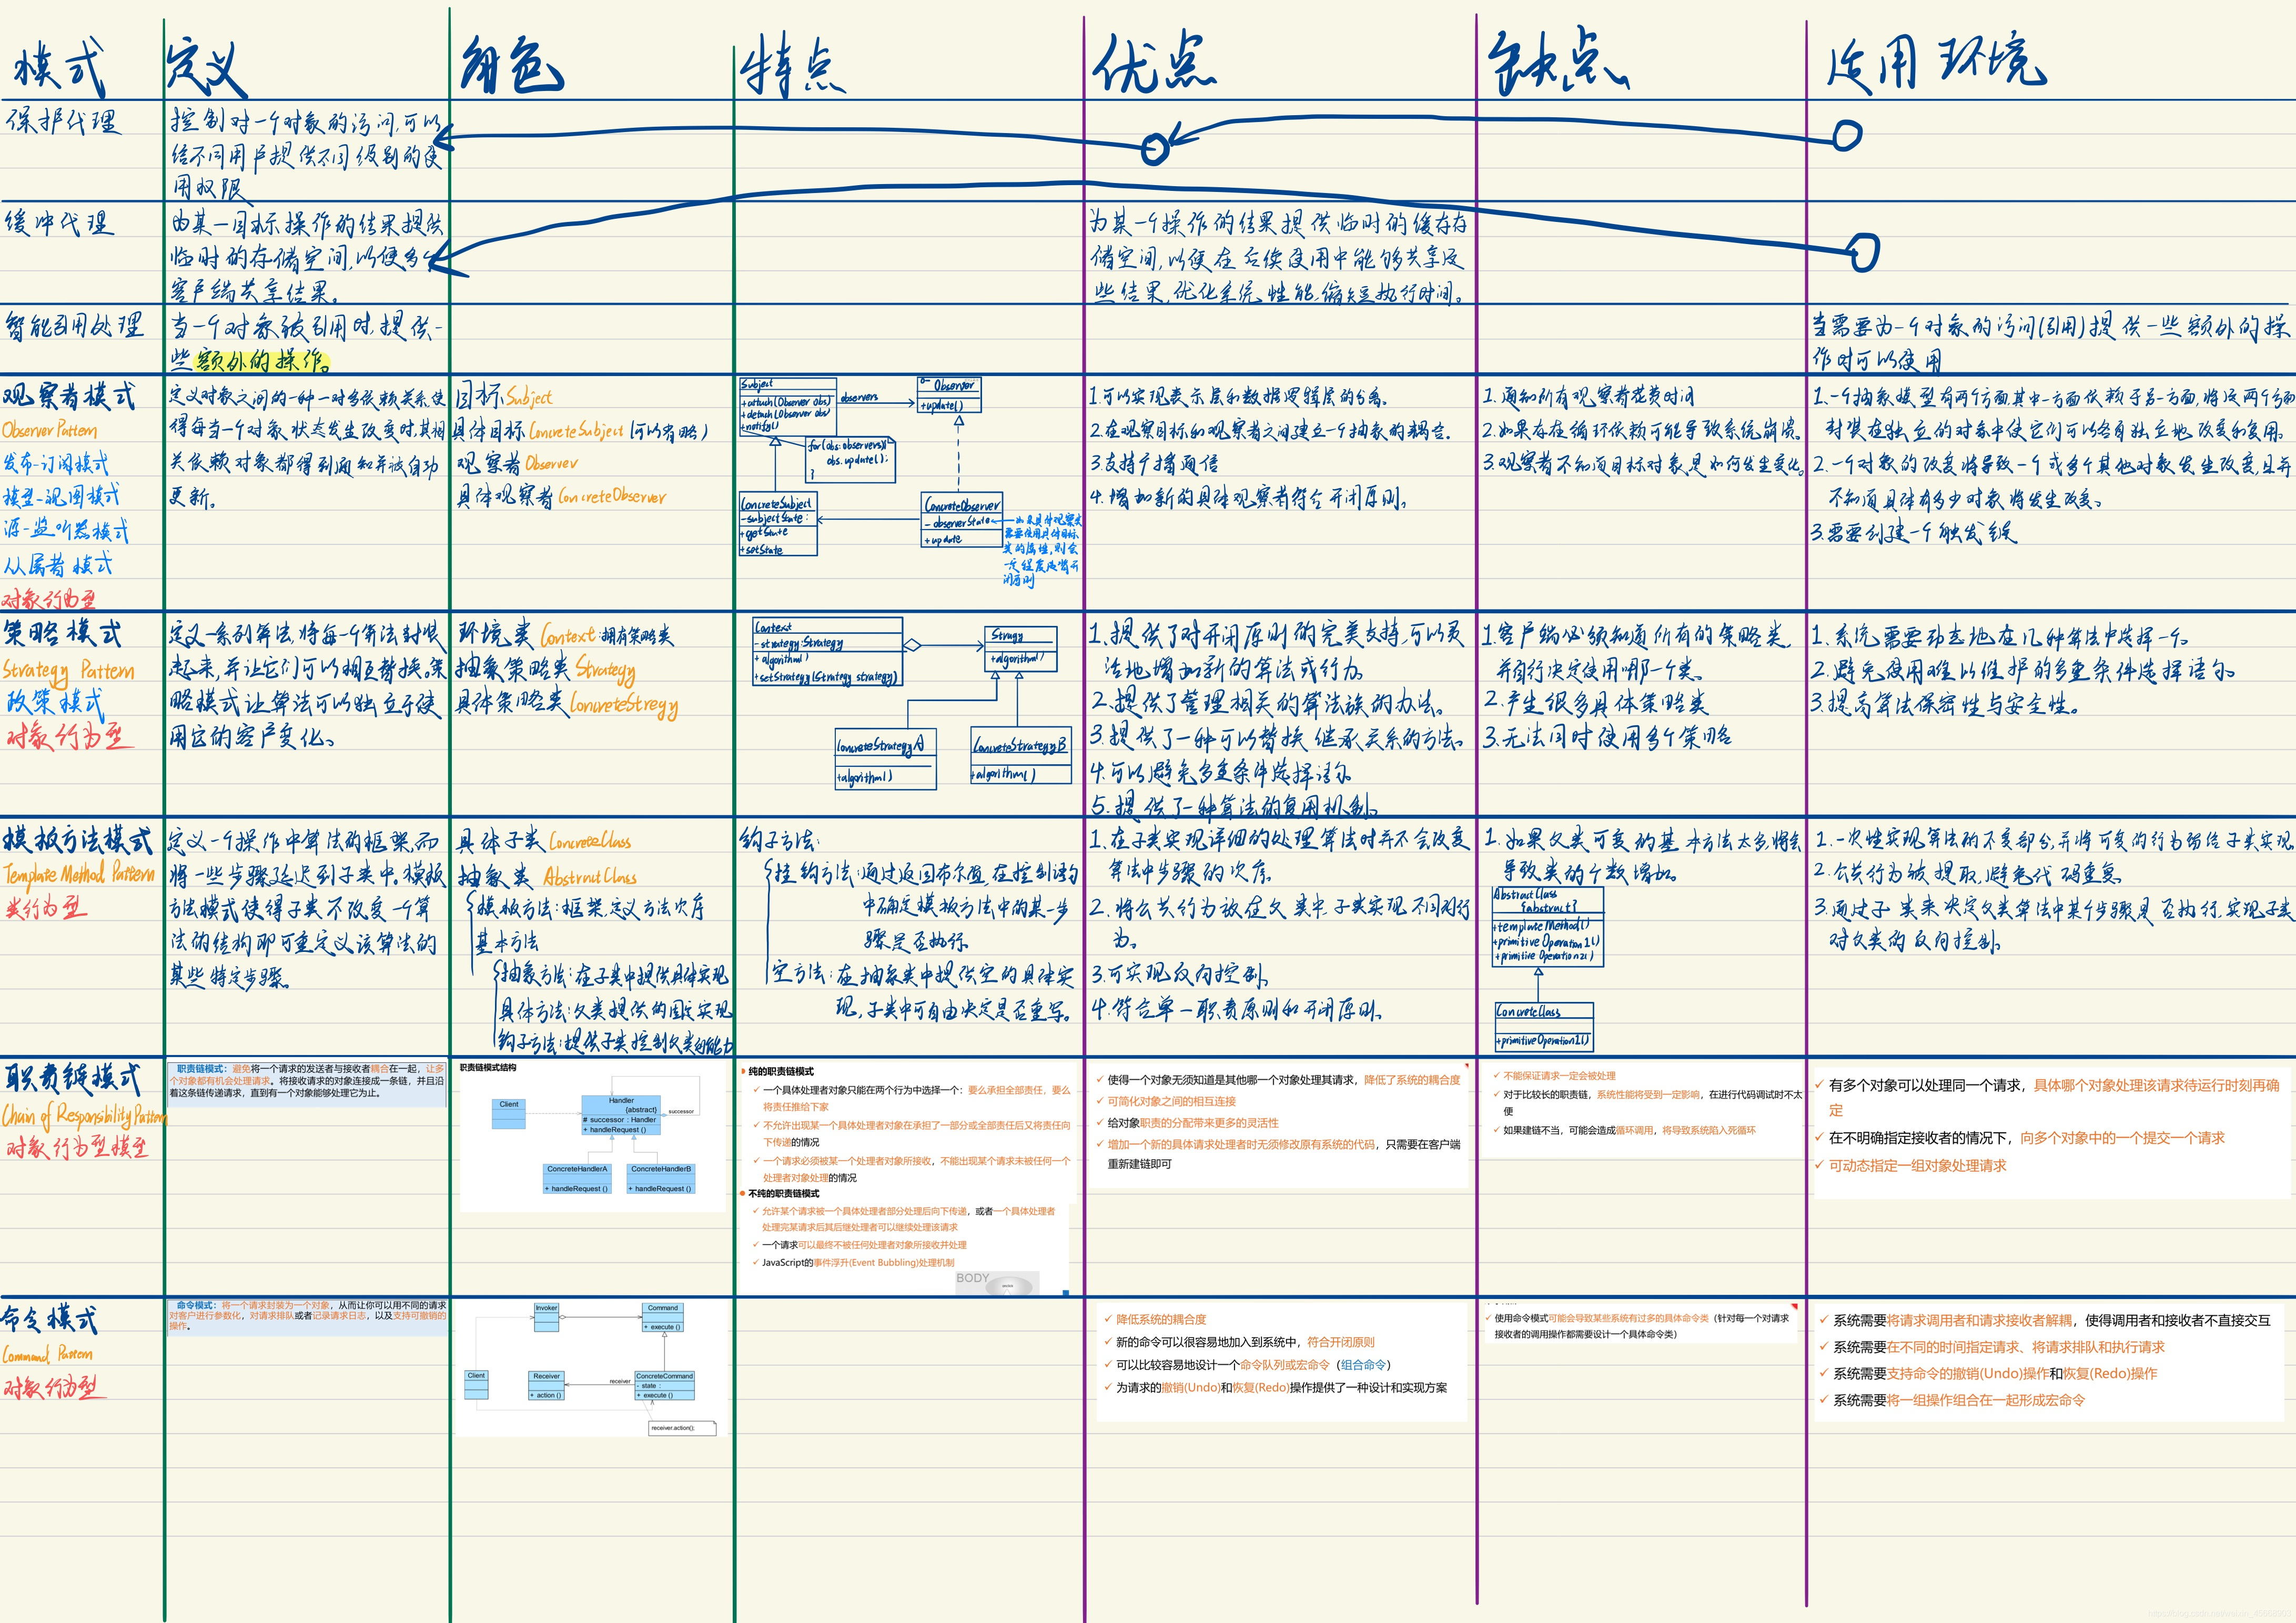 模式 定义 角色 特点 优点 缺点 适用环境
保护代理
控制对一个对象的访问,可以
给不同用户提供不同级别的使
用权限
缓冲代理
为某一目标操作的结果提供
临时的存储空间,以便多个
客户端共享结果。
为某一个操作的结果提供临时的缓存存
储空间,以便在后续使用中能够共享这
些结果,优化系统性能,缩短执行时间。
智能引用处理
当一个对象被引用时,提供一
些额外的操作。
当需要为一个对象的访问(引用)提供一些额外的操
作时可以使用
观察者模式
Observer Pattern
发布-订阅模式
模型-视图模式
源-监听器模式
从属者模式
对象行为型
定义对象之间的一种一对多依赖关系,使
得每当一个对象状态发生改变时,其相
关依赖对象都得到通知并被自动
更新。
目标Subject
具体目标ConcreteSubject(可以省略)
观察者Observer
具体观察者ConcreteObserver
Subject
+attach(Observer obs)
+detach(Observer obs)
+notify()
observers
Observer
+update()
for(obs:observers){
obs.update();
}
ConcreteSubject
-subjectState:
+getState
+setState
ConcreteObserver
-observerState
+update
如果具体观察类
需要使用具体目标
类的属性,则会
一定程度违背开
闭原则
1.可以实现表示层和数据逻辑层的分离。
2.在观察目标和观察者之间建立一个抽象的耦合。
3.支持广播通信
4.增加新的具体观察者符合开闭原则。
1.通知所有观察者花费时间
2.如果存在循环依赖可能导致系统崩溃。
3.观察者不知道目标对象是如何发生变化。
1.一个抽象模型有两个方面,其中一方面依赖于另一方面,将这两个方面
封装在独立的对象中使它们可以各自独立地改变和复用。
2.一个对象的改变将导致一个或多个其他对象发生改变,且并
不知道具体有多少对象将发生改变。
3.需要创建一个触发链
策略模式
Strategy Pattern
政策模式
对象行为型
定义一系列算法,将每一个算法封装
起来,并让它们可以相互替换。策
略模式让算法可以独立于使
用它的客户变化。
环境类 Context:拥有策略类
抽象策略类 Strategy
具体策略类ConcreteStregy
Context
-strategy:Strategy
+algorithm()
+setStrategy(Strategy strategy)
Stragy
+algorithm()
ConcreteStrategyA
+algorithm()
ConcreteStrategyB
+algorithm()
1.提供了对开闭原则的完美支持,可以灵
活地增加新的算法或行为。
2.提供了管理相关的算法族的办法。
3.提供了一种可以替换继承关系的方法。
4.可以避免多重条件选择语句
5.提供了一种算法的复用机制。
1.客户端必须知道所有的策略类,
并自行决定使用哪一个类。
2.产生很多具体策略类
3.无法同时使用多个策略
1.系统需要动态地在几种算法中选择一个。
2.避免使用难以维护的多重条件选择语句。
3.提高算法保密性与安全性。
模板方法模式
Template Method Pattern
类行为型
定义一个操作中算法的框架,而
将一些步骤延迟到子类中。模板
方法模式使得子类不改变一个算
法的结构即可重定义该算法的
某些特定步骤。
具体子类 ConcreteClass
抽象类 AbstructClass
模板方法:框架,定义方法次序
基本方法
抽象方法:在子类中提供具体实现
具体方法:父类提供的固定实现
钩子方法:提供子类控制父类的能力
钩子方法:
挂钩方法:通过返回布尔值,在控制语句
中确定模板方法中的某一步
骤是否执行
空方法:在抽象类中提供空的具体实
现,子类中可自由决定是否重写。
1.在子类实现详细的处理算法时并不会改变
算法中步骤的次序。
2.将公共行为放在父类中,子类实现不同的行
为。
3.可实现反向控制。
4.符合单一职责原则和开闭原则。
1.如果父类可变的基本方法太多,将会
导致类的个数增加。
AbstractClass
{abstract}
+templateMethod()
+primitiveOperation1()
+primitiveOperation2()
ConcreteClass
+primitiveOperation1()
1.一次性实现算法的不变部分,并将可变的行为留给子类实现
2.公共行为被提取,避免代码重复
3.通过子类来决定父类算法中某个步骤是否执行,实现子类
对父类的反向控制。
职责链模式
Chain of Responsibility Pattern
对象行为型模型
职责链模式：避免将一个请求的发送者与接收者耦合在一起，让多
个对象都有机会处理请求。将接收请求的对象连接成一条链，并且沿
着这条链传递请求，直到有一个对象能够处理它为止。
职责链模式结构
Client
Handler
{abstract}
# successor : Handler
+ handleRequest ()
successor
ConcreteHandlerA
+ handleRequest ()
ConcreteHandlerB
+ handleRequest ()
纯的职责链模式
一个具体处理者对象只能在两个行为中选择一个：要么承担全部责任，要么
将责任推给下家
不允许出现某一个具体处理者对象在承担了一部分或全部责任后又将责任向
下传递的情况
一个请求必须被某一个处理者对象所接收，不能出现某个请求未被任何一个
处理者对象处理的情况
不纯的职责链模式
允许某个请求被一个具体处理者部分处理后向下传递，或者一个具体处理者
处理完某请求后其后继处理者可以继续处理该请求
一个请求可以最终不被任何处理者对象所接收并处理
JavaScript的事件浮升(Event Bubbling)处理机制
BODY
使得一个对象无须知道是其他哪一个对象处理其请求，降低了系统的耦合度
可简化对象之间的相互连接
给对象职责的分配带来更多的灵活性
增加一个新的具体请求处理者时无须修改原有系统的代码，只需要在客户端
重新建链即可
不能保证请求一定会被处理
对于比较长的职责链，系统性能将受到一定影响，在进行代码调试时不太方
便
如果建链不当，可能会造成循环调用，将导致系统陷入死循环
有多个对象可以处理同一个请求，具体哪个对象处理该请求待运行时刻再确
定
在不明确指定接收者的情况下，向多个对象中的一个提交一个请求
可动态指定一组对象处理请求
命令模式
Command Pattern
对象行为型
命令模式：将一个请求封装为一个对象，从而让你可以用不同的请求
对客户进行参数化，对请求排队或者记录请求日志，以及支持可撤销的
操作。
Invoker
Command
+ execute ()
Client
Receiver
+ action ()
receiver
ConcreteCommand
- state :
+ execute ()
receiver.action();
降低系统的耦合度
新的命令可以很容易地加入到系统中，符合开闭原则
可以比较容易地设计一个命令队列或宏命令（组合命令）
为请求的撤销(Undo)和恢复(Redo)操作提供了一种设计和实现方案
使用命令模式可能会导致某些系统有过多的具体命令类（针对每一个对请求
接收者的调用操作都需要设计一个具体命令类）
系统需要将请求调用者和请求接收者解耦，使得调用者和接收者不直接交互
系统需要在不同的时间指定请求、将请求排队和执行请求
系统需要支持命令的撤销(Undo)操作和恢复(Redo)操作
系统需要将一组操作组合在一起形成宏命令